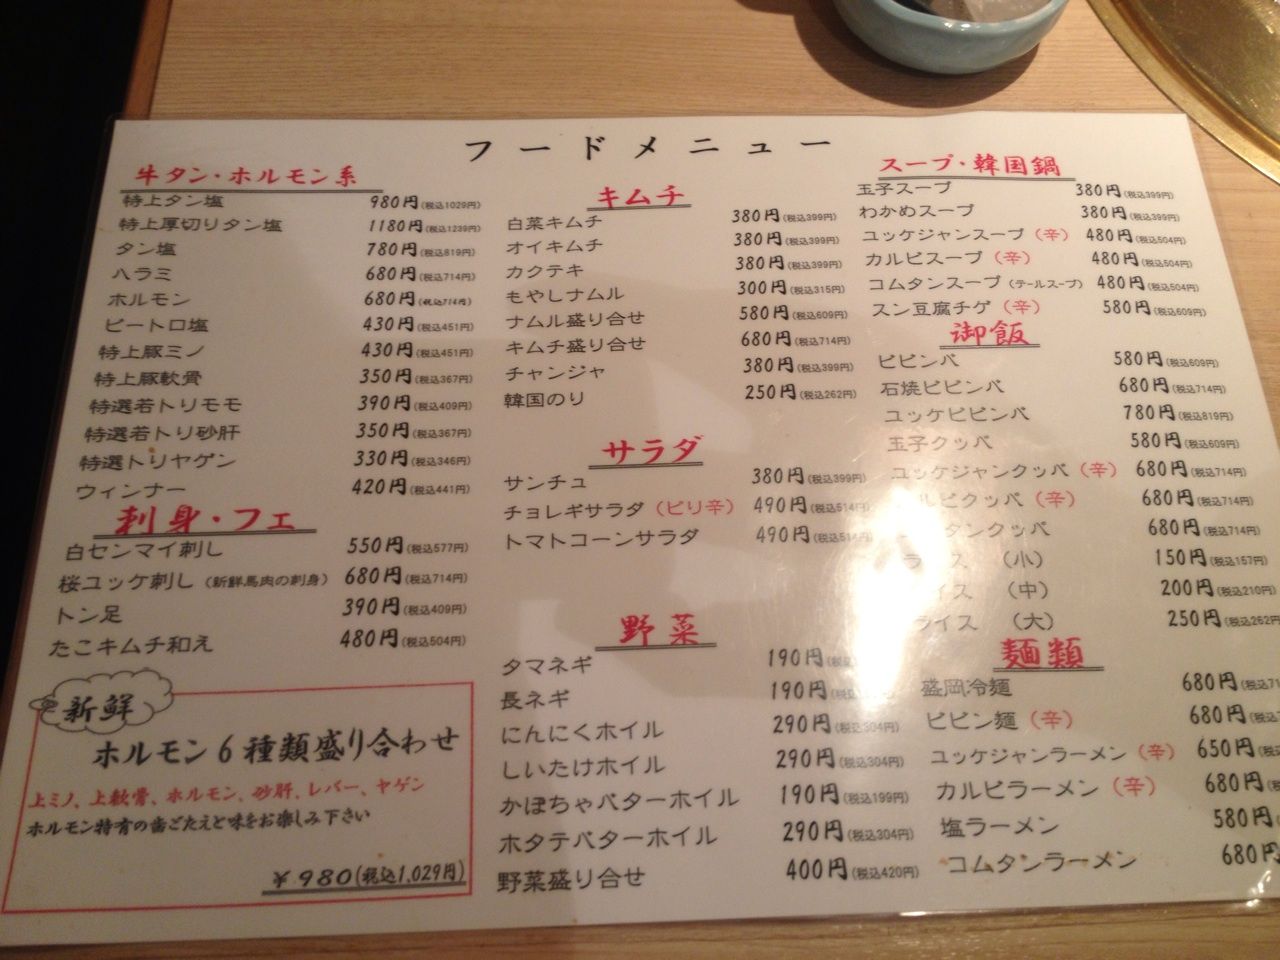 フードメニュー
牛タン・ホルモン系
特上タン塩 980円(税込1029円)
特上厚切りタン塩 1180円(税込1239円)
タン塩 780円(税込819円)
ハラミ 680円(税込714円)
ホルモン 680円(税込714円)
ピートロ塩 430円(税込451円)
特上豚ミノ 430円(税込451円)
特上豚軟骨 350円(税込367円)
特選若トリモモ 390円(税込409円)
特選若トリ砂肝 350円(税込367円)
特選トリヤゲン 330円(税込346円)
ウィンナー 420円(税込441円)
刺身・フェ
白センマイ刺し 550円(税込577円)
桜ユッケ刺し(新鮮馬肉の刺身) 680円(税込714円)
トン足 390円(税込409円)
たこキムチ和え 480円(税込504円)
新鮮
ホルモン6種類盛り合わせ
上ミノ、上軟骨、ホルモン、砂肝、レバー、ヤゲン
ホルモン特有の歯ごたえと味をお楽しみ下さい
¥980(税込1,029円)
キムチ
白菜キムチ 380円(税込399円)
オイキムチ 380円(税込399円)
カクテキ 380円(税込399円)
もやしナムル 300円(税込315円)
ナムル盛り合せ 580円(税込609円)
キムチ盛り合せ 680円(税込714円)
チャンジャ 380円(税込399円)
韓国のり 250円(税込262円)
サラダ
サンチュ 380円(税込399円)
チョレギサラダ(ピリ辛) 490円(税込514円)
トマトコーンサラダ 490円(税込514円)
野菜
タマネギ 190円
長ネギ 190円
にんにくホイル 290円(税込304円)
しいたけホイル 290円(税込304円)
かぼちゃバターホイル 190円(税込199円)
ホタテバターホイル 290円(税込304円)
野菜盛り合せ 400円(税込420円)
スープ・韓国鍋
玉子スープ 380円(税込399円)
わかめスープ 380円(税込399円)
ユッケジャンスープ(辛) 480円(税込504円)
カルビスープ(辛) 480円(税込504円)
コムタンスープ(テールスープ) 480円(税込504円)
スン豆腐チゲ(辛) 580円(税込609円)
御飯
ビビンバ 580円(税込609円)
石焼ビビンバ 680円(税込714円)
ユッケビビンバ 780円(税込819円)
玉子クッパ 580円(税込609円)
ユッケジャンクッパ(辛) 680円(税込714円)
ルビクッパ(辛) 680円(税込714円)
タンクッパ 680円(税込714円)
ライス (小) 150円(税込157円)
イス (中) 200円(税込210円)
ライス (大) 250円(税込262円
麺類
盛岡冷麺 680円(税込71
ビビン麺(辛) 680円(税込7
ユッケジャンラーメン(辛) 650円(税込
カルビラーメン(辛) 680円(税
塩ラーメン 580円(税
コムタンラーメン 680円